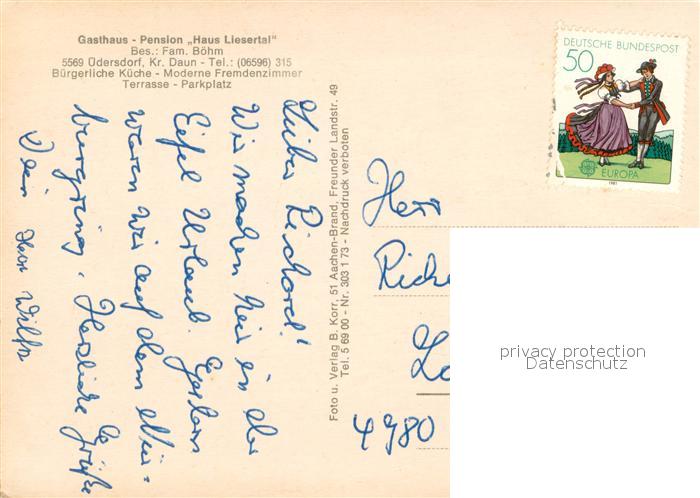 Gasthaus - Pension „Haus Liesertal"
Bes.: Fam. Böhm
5569 Üdersdorf, Kr. Daun - Tel.: (06596) 315
Bürgerliche Küche - Moderne Fremdenzimmer
Terrasse - Parkplatz
Lieber Richard!
Wir machen hier in der
Eifel Urlaub. Gestern
waren wir auf dem Nür-
burgring. Herzliche Grüße
Dein
Foto u. Verlag B. Korr, 51 Aachen-Brand, Freunder Landstr. 49
Tel. 5 69 00 - Nr. 303 1 73 - Nachdruck verboten
DEUTSCHE BUNDESPOST
50
EUROPA
1981
Herr
4980
privacy protection
Datenschutz